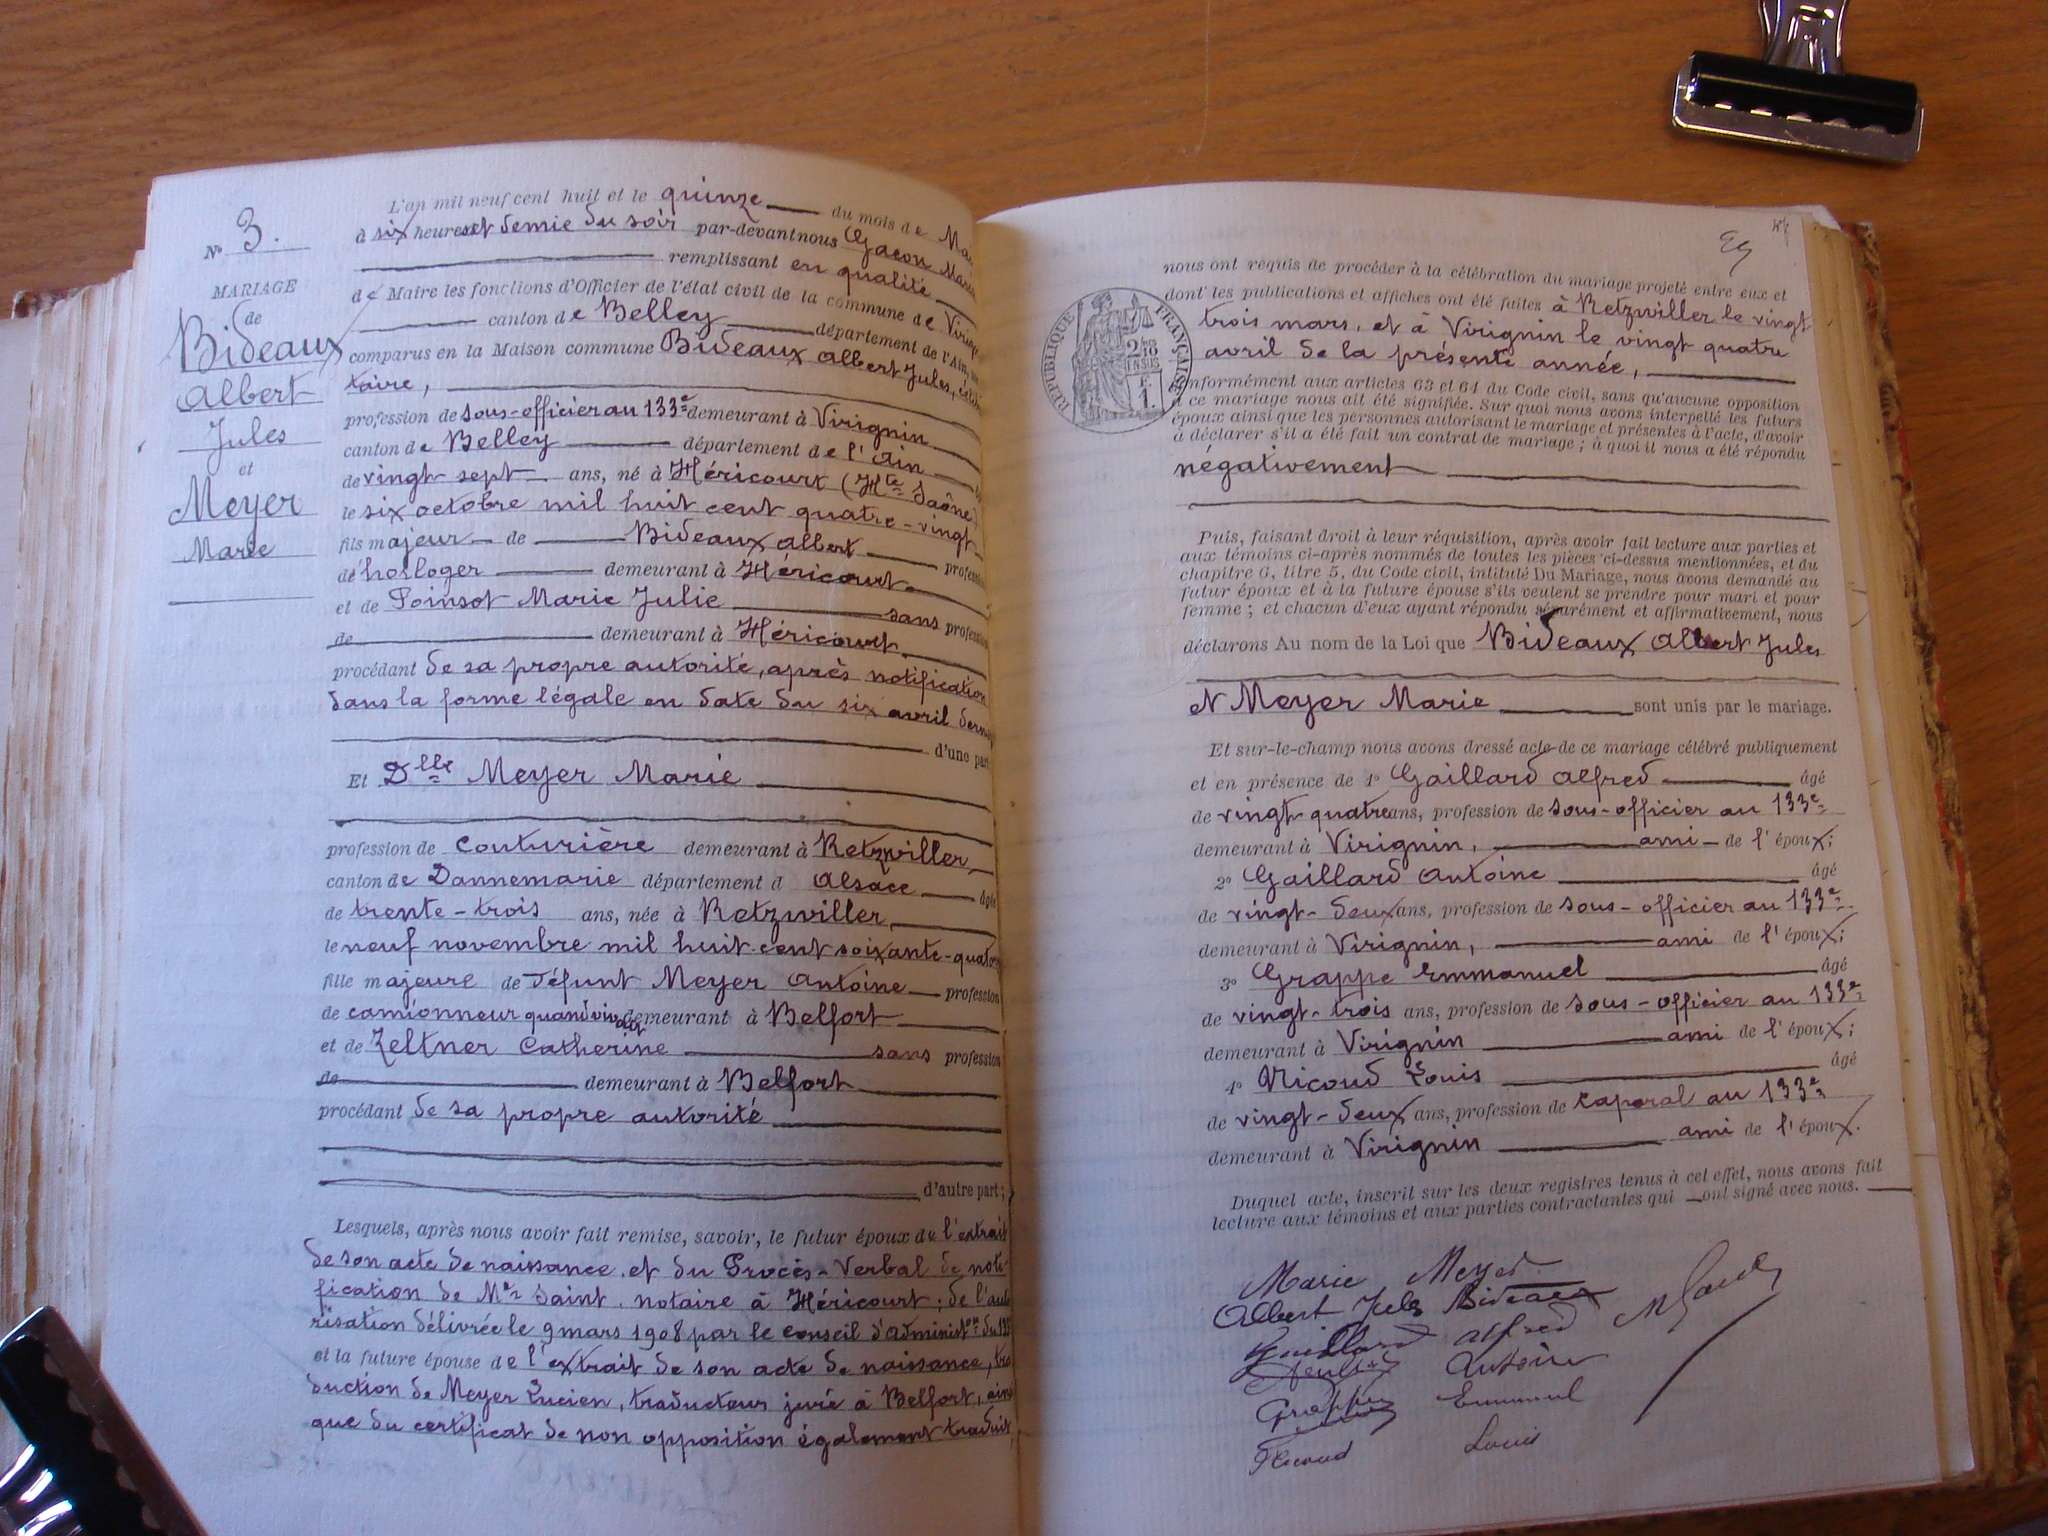 N° 3.
MARIAGE
de
Bideaux
Albert
Jules
et
Meyer
Marie
L'an mil neuf cent huit et le quinze du mois de
à six heures et demie du soir par-devant nous Gacon
remplissant en qualité
de Maire les fonctions d'Officier de l'état civil de la commune de
canton de Belley département de l'Ain,
comparus en la Maison commune Bideaux Albert Jules, céli
taire,
profession de sous-officier au 133e demeurant à Virignin
canton de Belley département de l'Ain
de vingt sept ans, né à Héricourt (Hte Saône)
le six octobre mil huit cent quatre-vingt
fils majeur de Bideaux Albert profession
de horloger demeurant à Héricourt
et de Poinsot Marie Julie sans profession
de demeurant à Héricourt
procédant de sa propre autorité, après notification
dans la forme légale en date du six avril dernier
d'une part
Et Dlle Meyer Marie
profession de couturière demeurant à Retzwiller,
canton de Dannemarie département d Alsace âgée
de trente-trois ans, née à Retzwiller,
le neuf novembre mil huit cent soixante-quatorze
fille majeure de défunt Meyer Antoine profession
de camionneur quand vivait demeurant à Belfort
et de Zeltner Catherine sans profession
de demeurant à Belfort
procédant de sa propre autorité
d'autre part;
Lesquels, après nous avoir fait remise, savoir, le futur époux de l'extrait
de son acte de naissance, et du Procès-Verbal de noti-
fication de Me Saint, notaire à Héricourt; de l'auto
risation délivrée le 9 mars 1908 par le conseil d'Administon du 133
et la future épouse de l'extrait de son acte de naissance, tra
duction de Meyer Lucien, traducteur juré à Belfort, ainsi
que du certificat de non opposition également traduit,
nous ont requis de procéder à la célébration du mariage projeté entre eux et
dont les publications et affiches ont été faites à Retzwiller le vingt
trois mars, et à Virignin le vingt quatre
avril de la présente année,
RÉPUBLIQUE FRANÇAISE
conformément aux articles 63 et 64 du Code civil, sans qu'aucune opposition
à ce mariage nous ait été signifiée. Sur quoi nous avons interpellé les futurs
époux ainsi que les personnes autorisant le mariage et présentes à l'acte, d'avoir
à déclarer s'il a été fait un contrat de mariage; à quoi il nous a été répondu
négativement
Puis, faisant droit à leur réquisition, après avoir fait lecture aux parties et
aux témoins ci-après nommés de toutes les pièces ci-dessus mentionnées, et du
chapitre 6, titre 5, du Code civil, intitulé Du Mariage, nous avons demandé au
futur époux et à la future épouse s'ils veulent se prendre pour mari et pour
femme; et chacun d'eux ayant répondu séparément et affirmativement, nous
déclarons Au nom de la Loi que Bideaux Albert Jules
et Meyer Marie sont unis par le mariage.
Et sur-le-champ nous avons dressé acte de ce mariage célébré publiquement
et en présence de 1° Gaillard Alfred âgé
de vingt-quatre ans, profession de sous-officier au 133e
demeurant à Virignin, ami de l'époux;
2° Gaillard Antoine âgé
de vingt-deux ans, profession de sous-officier au 133e
demeurant à Virignin, ami de l'époux;
3° Grappe Emmanuel âgé
de vingt-trois ans, profession de sous-officier au 133e
demeurant à Virignin ami de l'époux;
4° Nicoud Louis âgé
de vingt-deux ans, profession de caporal au 133e
demeurant à Virignin ami de l'époux.
Duquel acte, inscrit sur les deux registres tenus à cet effet, nous avons fait
lecture aux témoins et aux parties contractantes qui ont signé avec nous.
Marie Meyer
Albert Jules Bideaux
Gaillard Alfred
Antoine
Grappe Emmanuel
Nicoud Louis